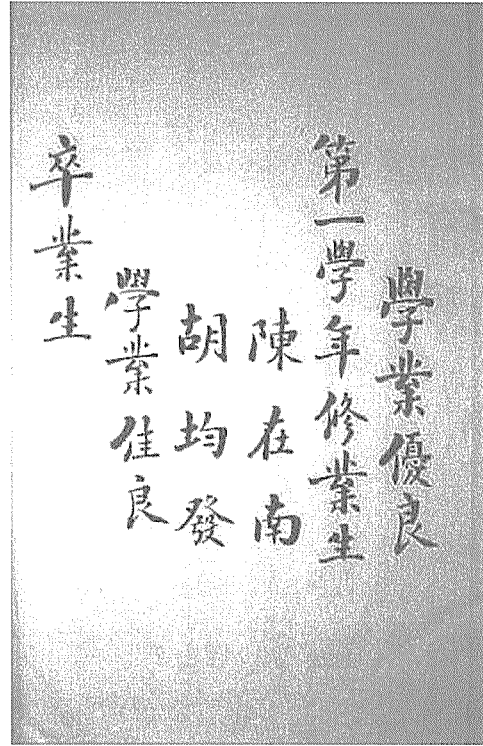 學業優良
第一學年修業生
陳在南
胡均發
學業佳良
卒業生